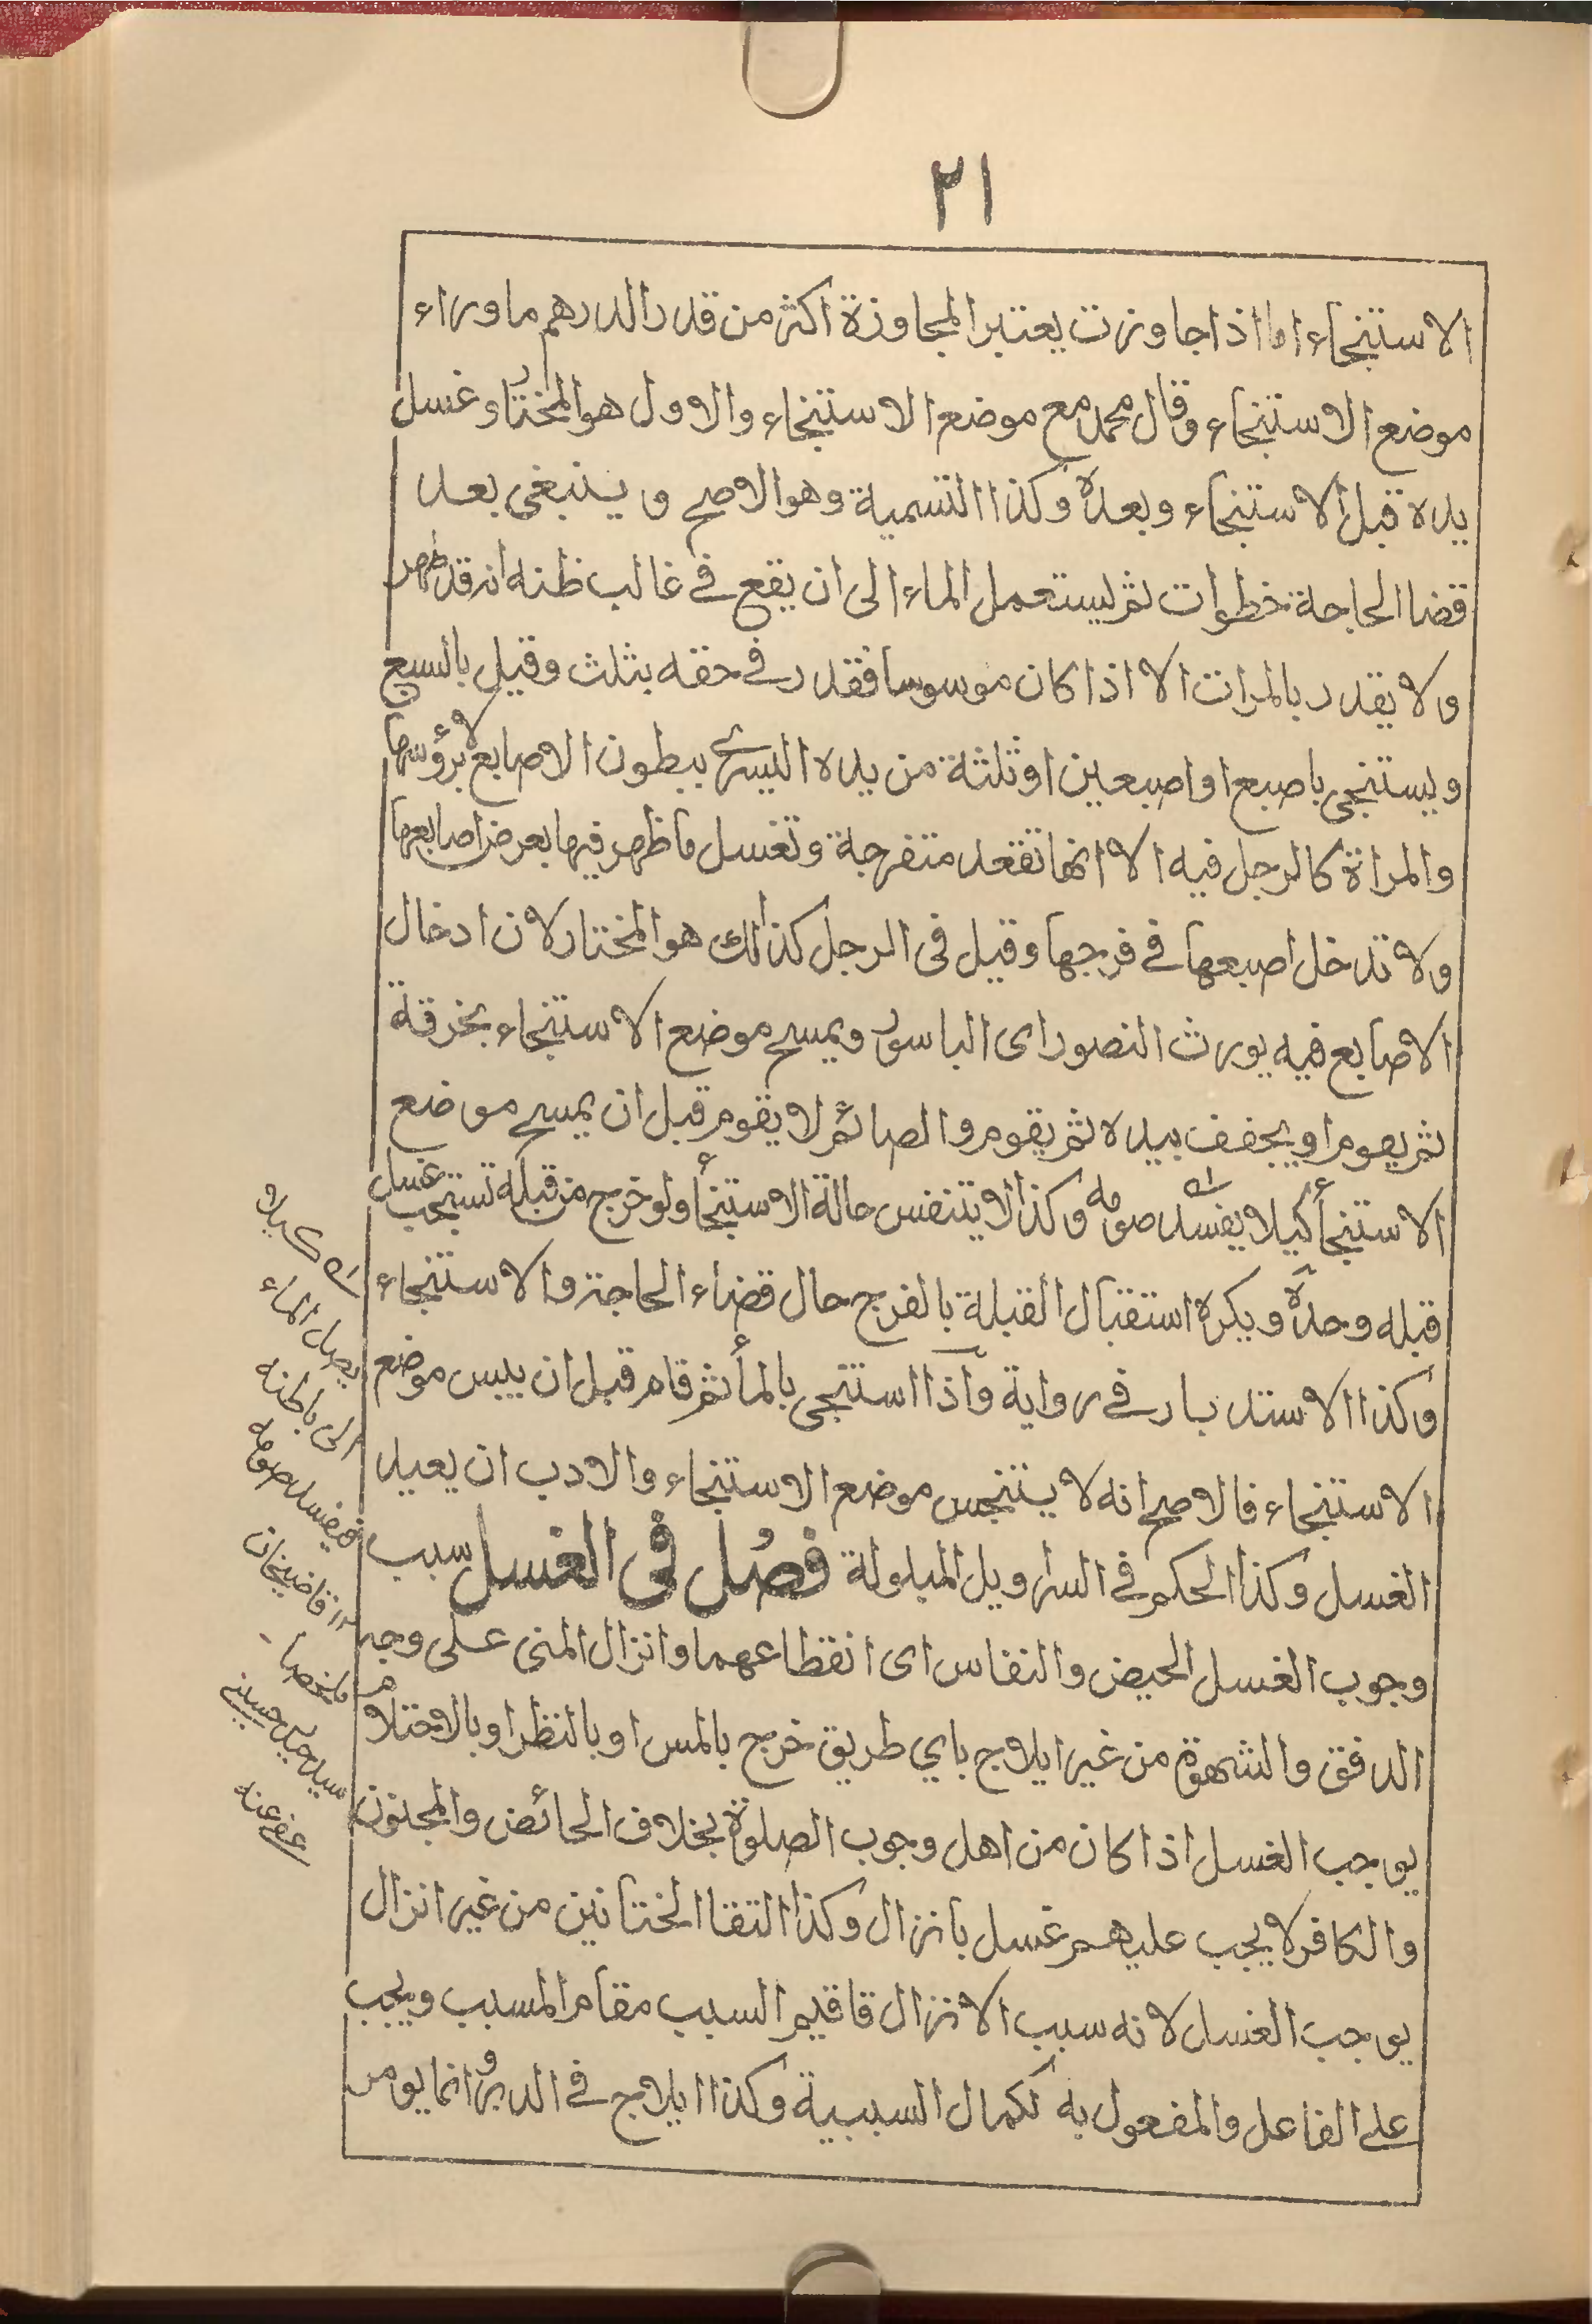 ٢١
الاستنجاء اما اذا جاوزت يعتبر المجاوزة اكثر من قدر الدرهم ما وراء
موضع الاستنجاء وقال محمد مع موضع الاستنجاء والاول هو المختار وغسل
يده قبل الاستنجاء وبعده وكذا التسمية وهو الاصح و ينبغى بعد
قضا الحاجة خطوات ثم ليستعمل الماء الى ان يقع في غالب ظنه انه قد طهر
ولا يقدر بالمرات الا اذا كان موسوسا فقدر في حقه بثلث وقيل بالسبع
ويستنجى باصبع او اصبعين او ثلثة من يده اليسرى ببطون الاصابع لا برؤسها
والمراة كالرجل فيه الا انها تقعد متفرجة وتغسل ما ظهر فيها بعرض اصابعها
ولا تدخل اصبعها في فرجها وقيل فى الرجل كذالك هو المختار لان ادخال
الاصابع فيه يورث النصور اى الباسور ويمسح موضع الاستنجاء بخرقة
ثم يقوم او يجفف بيده ثم يقوم والصائم لا يقوم قبل ان يمسح موضع
الاستنجأ كيلا يفسد صومه وكذا لا يتنفس حالة الاستنجأ ولو خرج من قبله تستحب غسل
قبله وحده ويكره استقبال القبلة بالفرج حال قضاء الحاجة والاستنجاء
وكذا الاستدبار في رواية واذا استنجى بالمأ ثم قام قبل ان ييبس موضع
الاستنجاء فالاصح انه لا يتنجس موضع الاستنجاء والادب ان يعيد
الغسل وكذا الحكم في السراويل المبلولة فصل فى الغسل سبب
وجوب الغسل الحيض والنفاس اى انقطاعهما وانزال المنى على وجه
الدفق والشهوة من غير ايلاج باي طريق خرج بالمس او بالنظر او بالاحتلام
يوجب الغسل اذا كان من اهل وجوب الصلوة بخلاف الحائض والمجنون
والكافر لا يجب عليهم غسل بانزال وكذا التقا الختانين من غير انزال
يوجب الغسل لانه سبب الانزال فاقيم السبب مقام المسبب ويجب
على الفاعل والمفعول به لكمال السببية وكذا ايلاج في الدبر وانما يومر
كيلا
يصل الماء
الى باطنه
فيفسد صومه
١٢ قاضيخان
ملخصا
سيد حسينى
عفى عنه